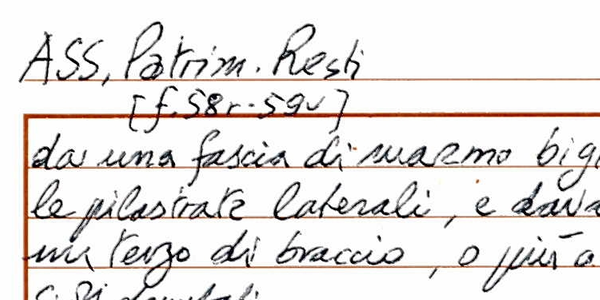 ASS, Patrim. Resti
[f.58r-59v]
da una fascia di marmo big
le pilastrate laterali, e dava
un terzo di braccio, o più o